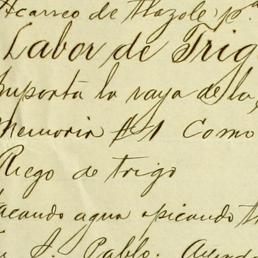 Acarreo de tlazole pa
Labor de Trig
Importa la raya de la
Memoria # 1 Como
Riego de trigo
sacando agua apicando
S. Pablo.